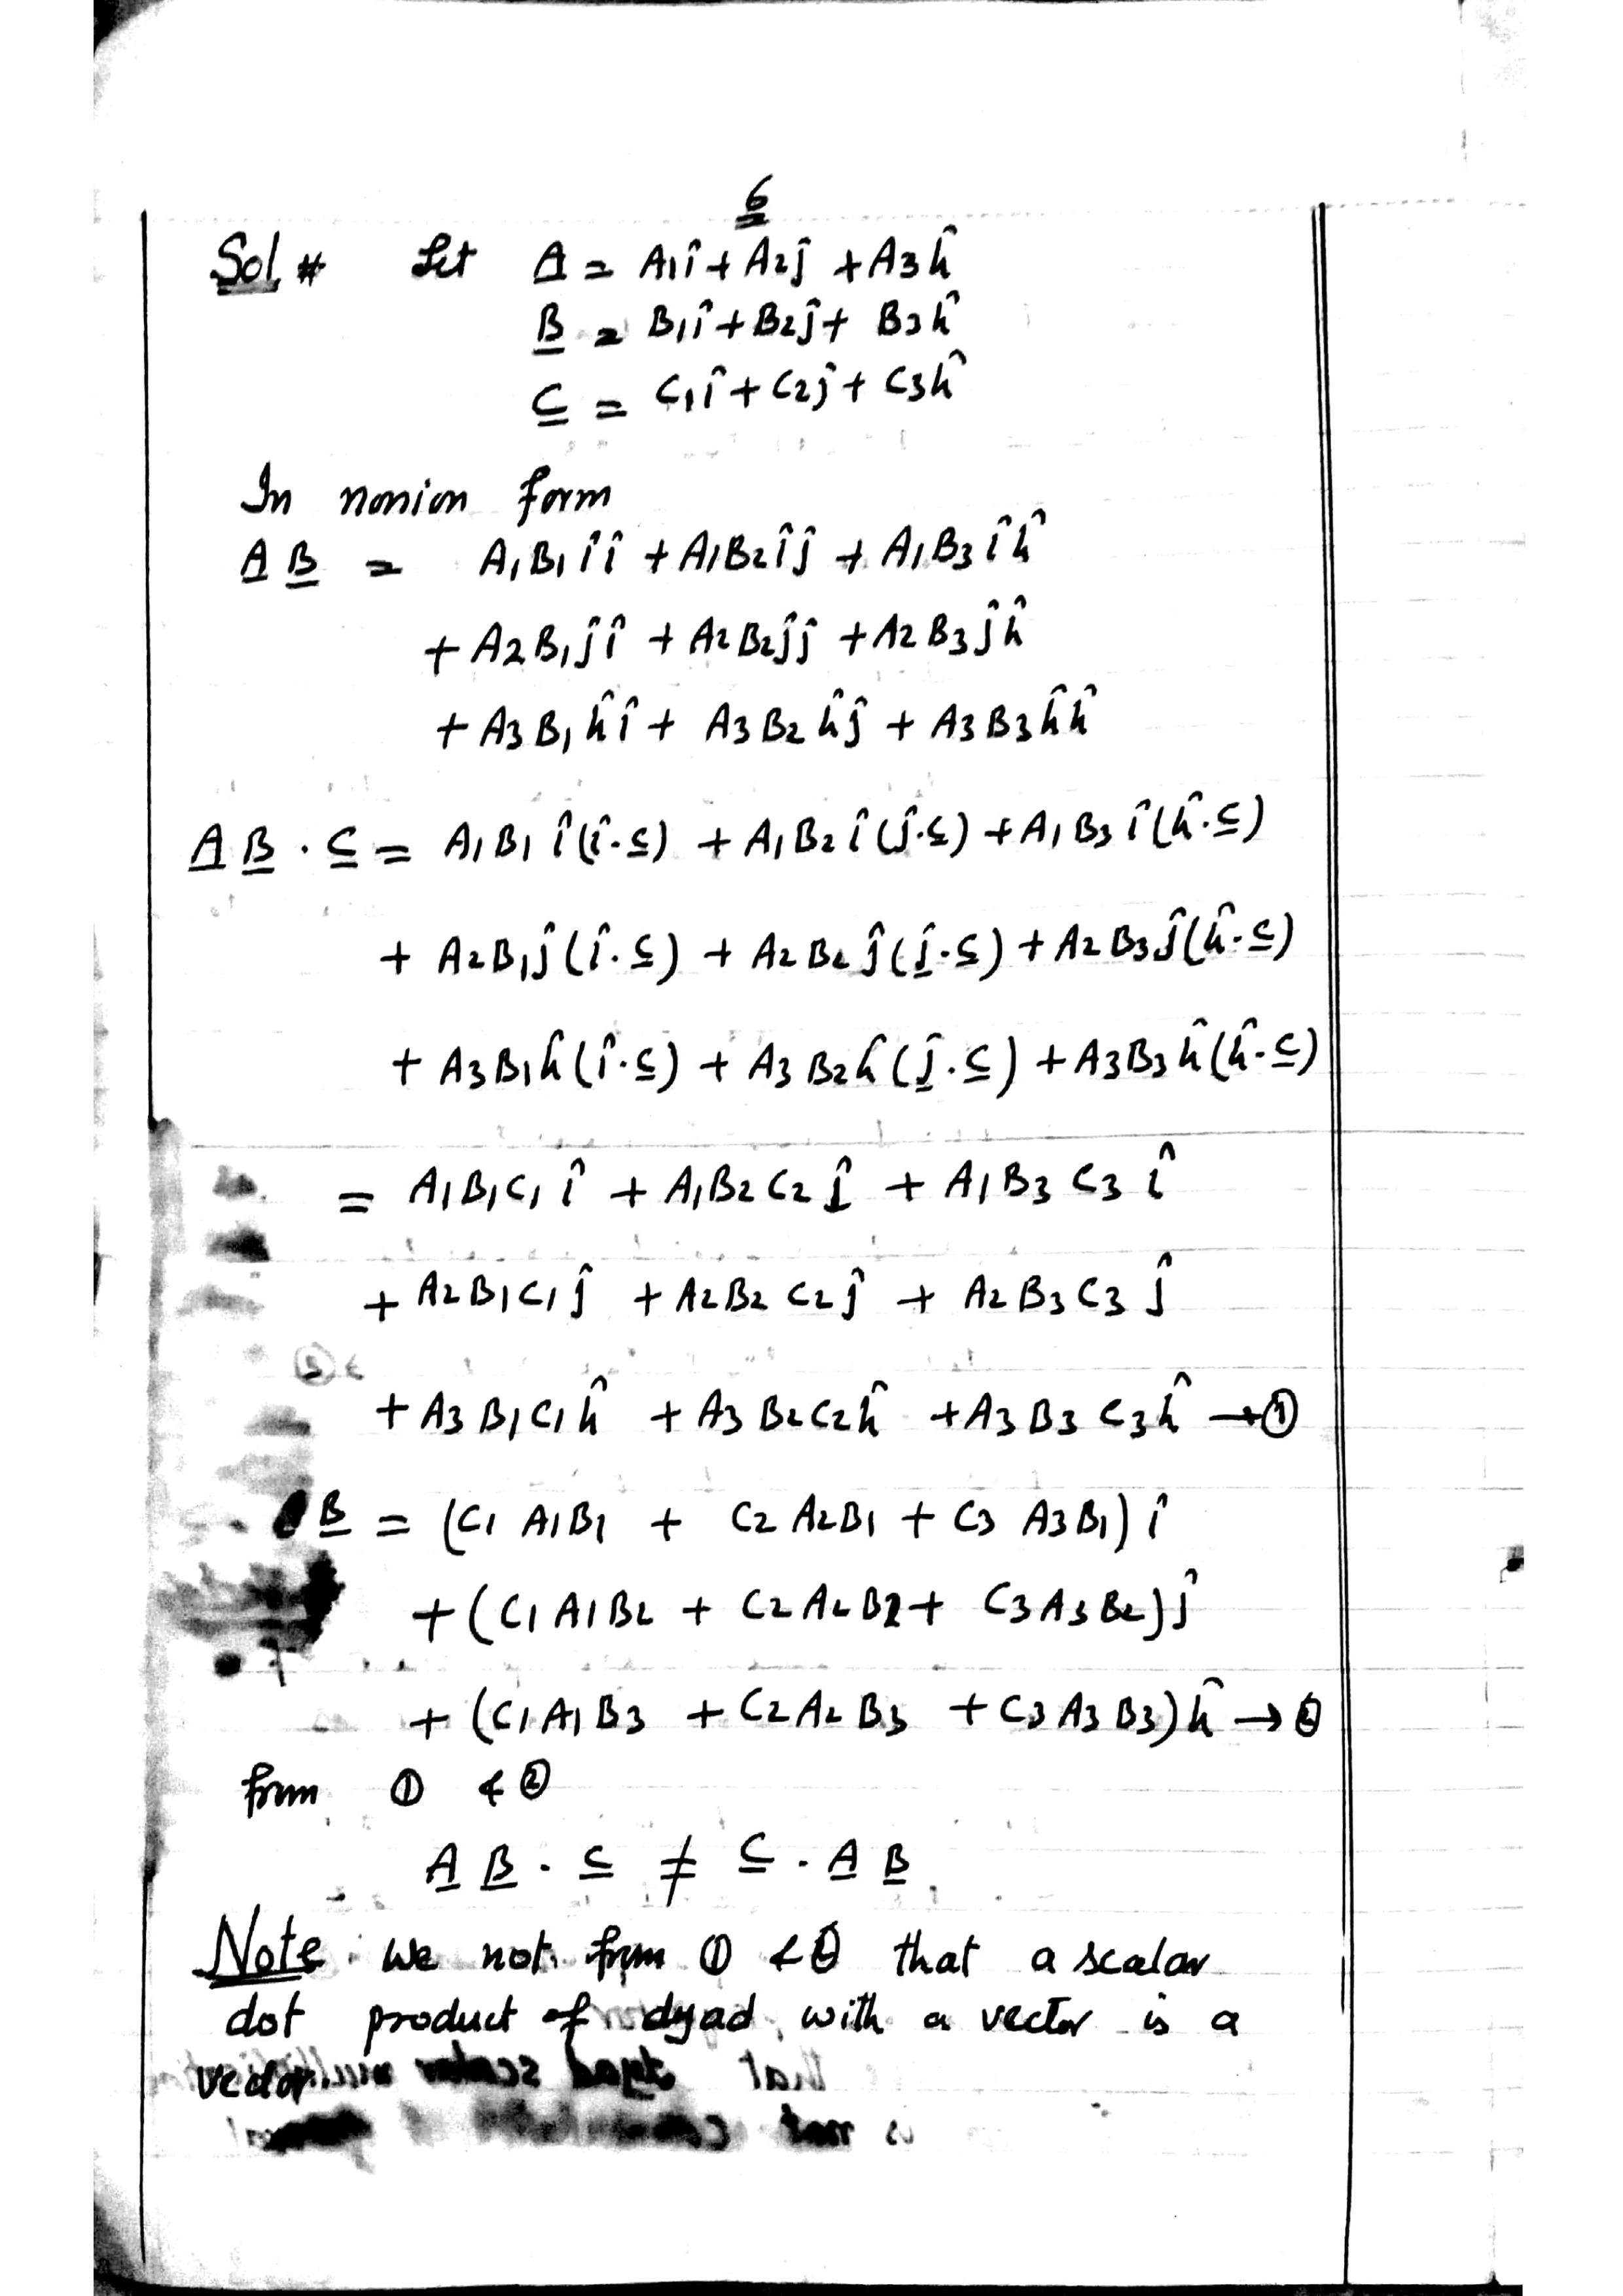 6
Sol # Let A = A1î + A2ĵ + A3k̂
B = B1î + B2ĵ + B3k̂
C = C1î + C2ĵ + C3k̂
In nonion form
A B = A1B1 î î + A1B2 î ĵ + A1B3 î k̂
+ A2B1 ĵ î + A2B2 ĵ ĵ + A2B3 ĵ k̂
+ A3B1 k̂ î + A3B2 k̂ ĵ + A3B3 k̂ k̂
A B . C = A1B1 î (î . C) + A1B2 î (ĵ . C) + A1B3 î (k̂ . C)
+ A2B1 ĵ (î . C) + A2B2 ĵ (ĵ . C) + A2B3 ĵ (k̂ . C)
+ A3B1 k̂ (î . C) + A3B2 k̂ (ĵ . C) + A3B3 k̂ (k̂ . C)
= A1B1C1 î + A1B2C2 î + A1B3C3 î
+ A2B1C1 ĵ + A2B2C2 ĵ + A2B3C3 ĵ
+ A3B1C1 k̂ + A3B2C2 k̂ + A3B3C3 k̂ → ①
B = (C1A1B1 + C2A2B1 + C3A3B1) î
+ (C1A1B2 + C2A2B2 + C3A3B2) ĵ
+ (C1A1B3 + C2A2B3 + C3A3B3) k̂ → ②
from ① & ②
A B . C ≠ C . A B
Note : we not from ① & ② that a scalar
dot product of dyad with a vector is a
vector.